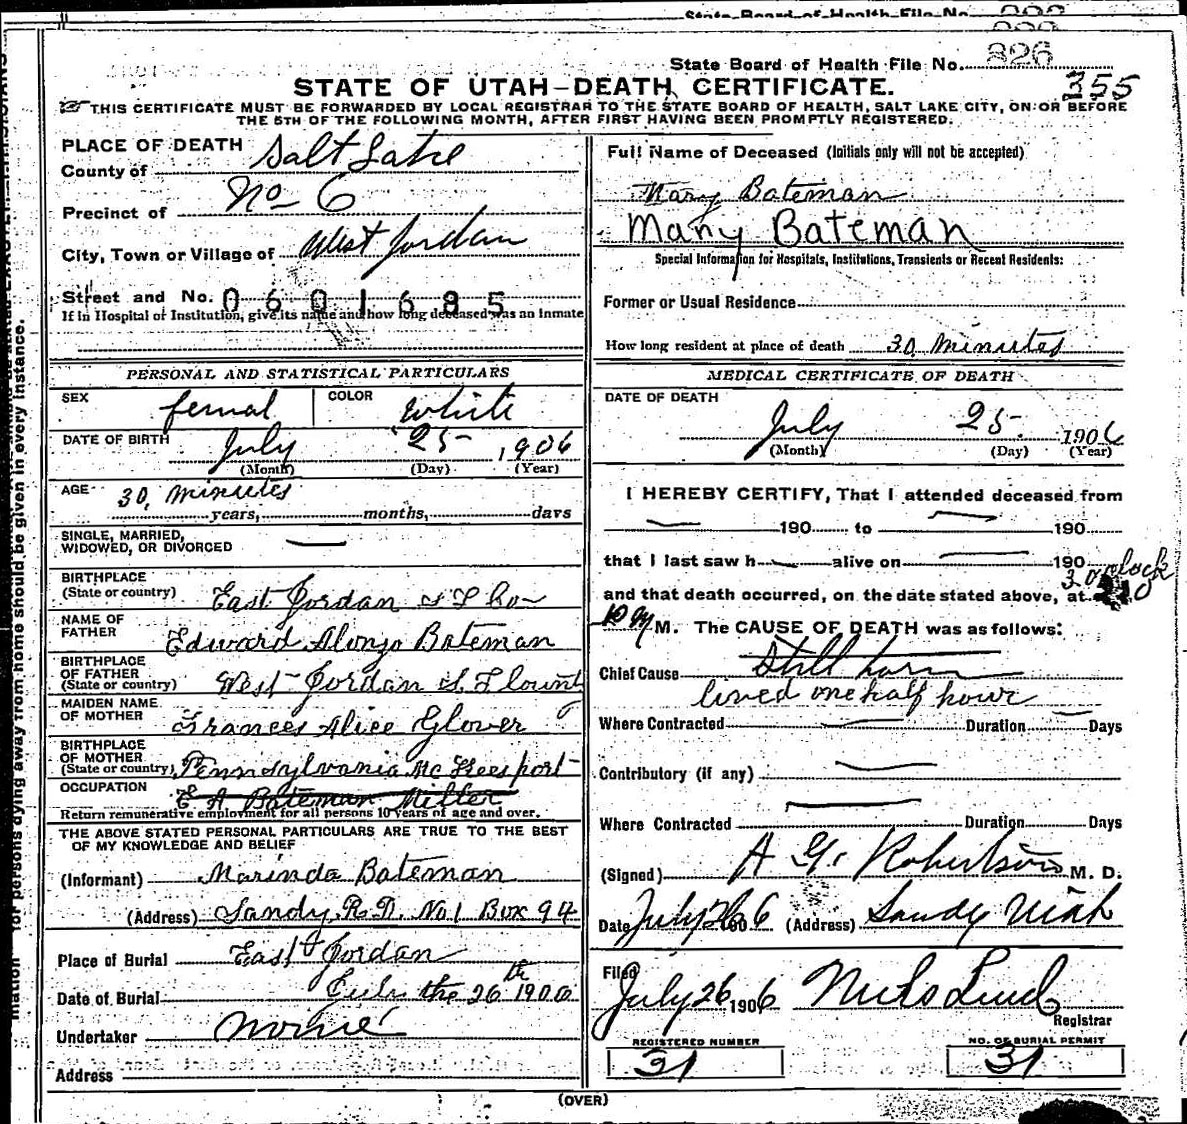 State Board of Health File No. 826
355
STATE OF UTAH-DEATH CERTIFICATE.
THIS CERTIFICATE MUST BE FORWARDED BY LOCAL REGISTRAR TO THE STATE BOARD OF HEALTH, SALT LAKE CITY, ON OR BEFORE
THE 5TH OF THE FOLLOWING MONTH, AFTER FIRST HAVING BEEN PROMPTLY REGISTERED.
PLACE OF DEATH
County of Salt Lake
Precinct of No 6
City, Town or Village of West Jordan
Street and No. 0601685
If in Hospital or Institution, give its name and how long deceased was an inmate
PERSONAL AND STATISTICAL PARTICULARS
SEX femal COLOR White
DATE OF BIRTH July 25 1906
(Month) (Day) (Year)
AGE 30 minutes
years, months, days
SINGLE, MARRIED,
WIDOWED, OR DIVORCED
BIRTHPLACE
(State or country) East Jordan S L Co
NAME OF
FATHER Edward Alonzo Bateman
BIRTHPLACE
OF FATHER
(State or country) West Jordan S. L Count
MAIDEN NAME
OF MOTHER Frances Alice Glover
BIRTHPLACE
OF MOTHER
(State or country) Pennsylvania Mc Keesport
OCCUPATION E A Bateman Miller
Return remunerative employment for all persons 10 years of age and over.
THE ABOVE STATED PERSONAL PARTICULARS ARE TRUE TO THE BEST
OF MY KNOWLEDGE AND BELIEF
(Informant) Marinda Bateman
(Address) Sandy R.D. No 1 Box 94
Place of Burial East Jordan
Date of Burial July the 26th 1906
Undertaker
Address
Full Name of Deceased (Initials only will not be accepted)
Mary Bateman
Mary Bateman
Special Information for Hospitals, Institutions, Transients or Recent Residents:
Former or Usual Residence
How long resident at place of death 30 minutes
MEDICAL CERTIFICATE OF DEATH
DATE OF DEATH
July 25 1906
(Month) (Day) (Year)
I HEREBY CERTIFY, That I attended deceased from
190 to 190
that I last saw h alive on 190
3 oclock
and that death occurred, on the date stated above, at
M. The CAUSE OF DEATH was as follows:
Chief Cause Still born
lived one half hour
Where Contracted Duration Days
Contributory (if any)
Where Contracted Duration Days
(Signed) A. G. Robertson M. D.
Date July 26 1906 (Address) Sandy Utah
Filed
July 26 1906 Niels Lind
Registrar
REGISTERED NUMBER
31
NO. OF BURIAL PERMIT
31
(OVER)
for persons dying away from home should be given in every instance.